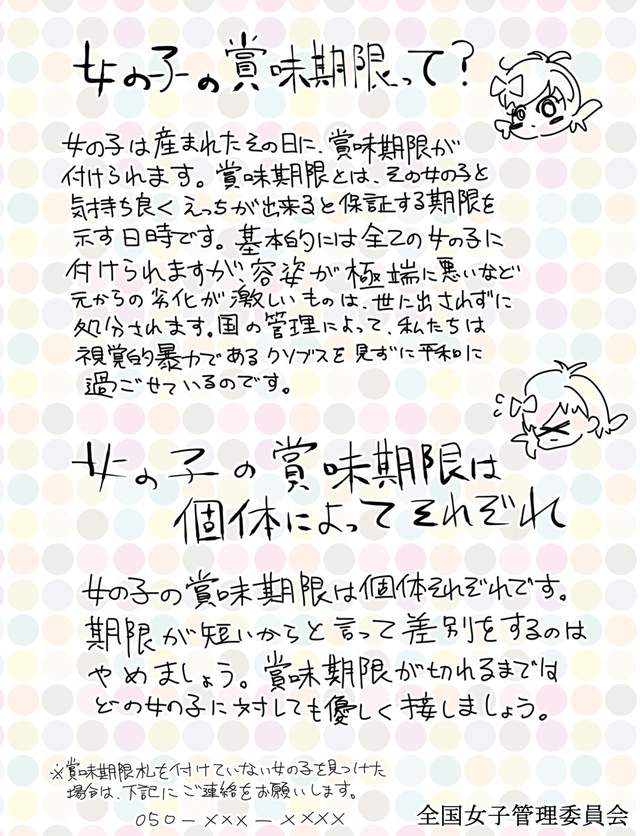 女の子の賞味期限って？
女の子は産まれたその日に、賞味期限が
付けられます。賞味期限とは、その女の子と
気持ち良くえっちが出来ると保証する期限を
示す日時です。基本的には全ての女の子に
付けられますが、容姿が極端に悪いなど
元からの劣化が激しいものは、世に出されずに
処分されます。国の管理によって、私たちは
視覚的暴力であるクソブスを見ずに平和に
過ごせているのです。
女の子の賞味期限は
個体によってそれぞれ
女の子の賞味期限は個体それぞれです。
期限が短いからと言って差別をするのは
やめましょう。賞味期限が切れるまでは
どの女の子に対しても優しく接しましょう。
※賞味期限札を付けていない女の子を見つけた
場合は、下記にご連絡をお願いします。
050-×××-××××
全国女子管理委員会